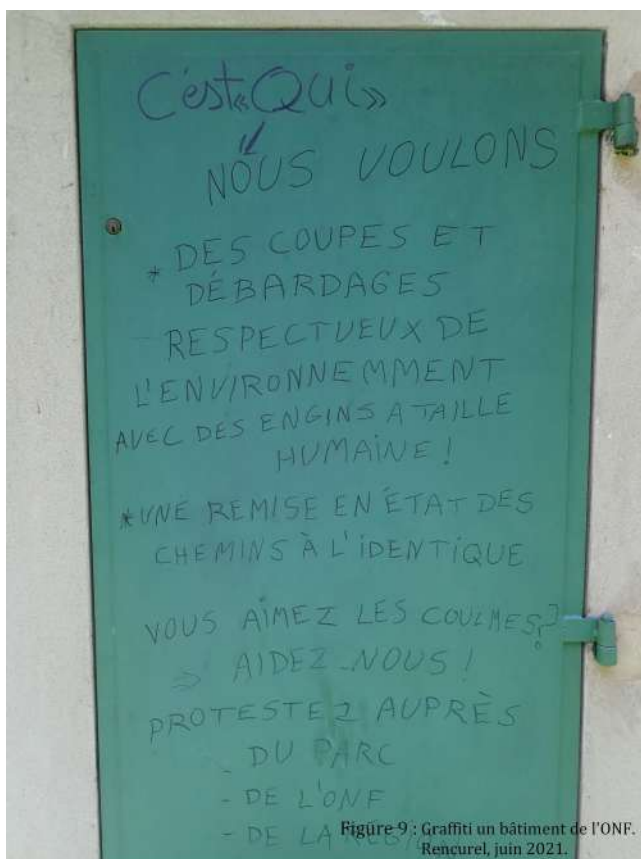 C'est «Qui»
NOUS VOULONS
* DES COUPES ET
DÉBARDAGES
RESPECTUEUX DE
L'ENVIRONNEMMENT
AVEC DES ENGINS A TAILLE
HUMAINE !
* UNE REMISE EN ÉTAT DES
CHEMINS À L'IDENTIQUE
VOUS AIMEZ LES COULMES ?
⇒ AIDEZ-NOUS !
PROTESTEZ AUPRÈS
- DU PARC
- DE L'ONF
- DE LA
Figure 9 : Graffiti un bâtiment de l'ONF.
Rencurel, juin 2021.